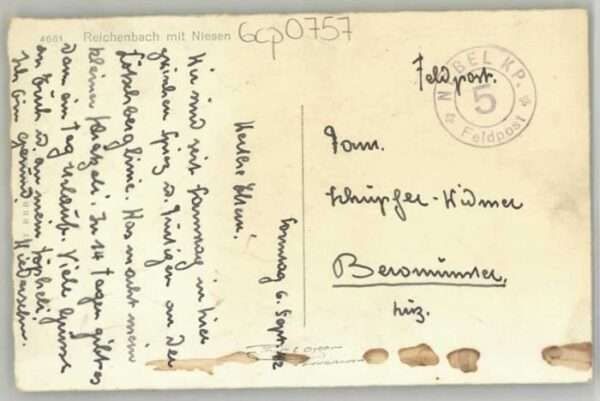 4661 Reichenbach mit Niesen
6cp0757
Feldpost.
NEBEL KP. 5
Feldpost
Fam.
Schüpfer-Widmer
Beromünster,
Luz.
Sonntag 6. Sept. 42
Liebe Eltern!
Wir sind seit Samstag in hier
zwischen Spiez u. Frutigen an der
Lötschberglinie. Was macht mein
kleiner Schatzeli. In 14 Tagen gibt es
dann ein Tag Urlaub. Viele Grüsse
an Euch u. an mein
Ich bin gesund. Wiedersehn.